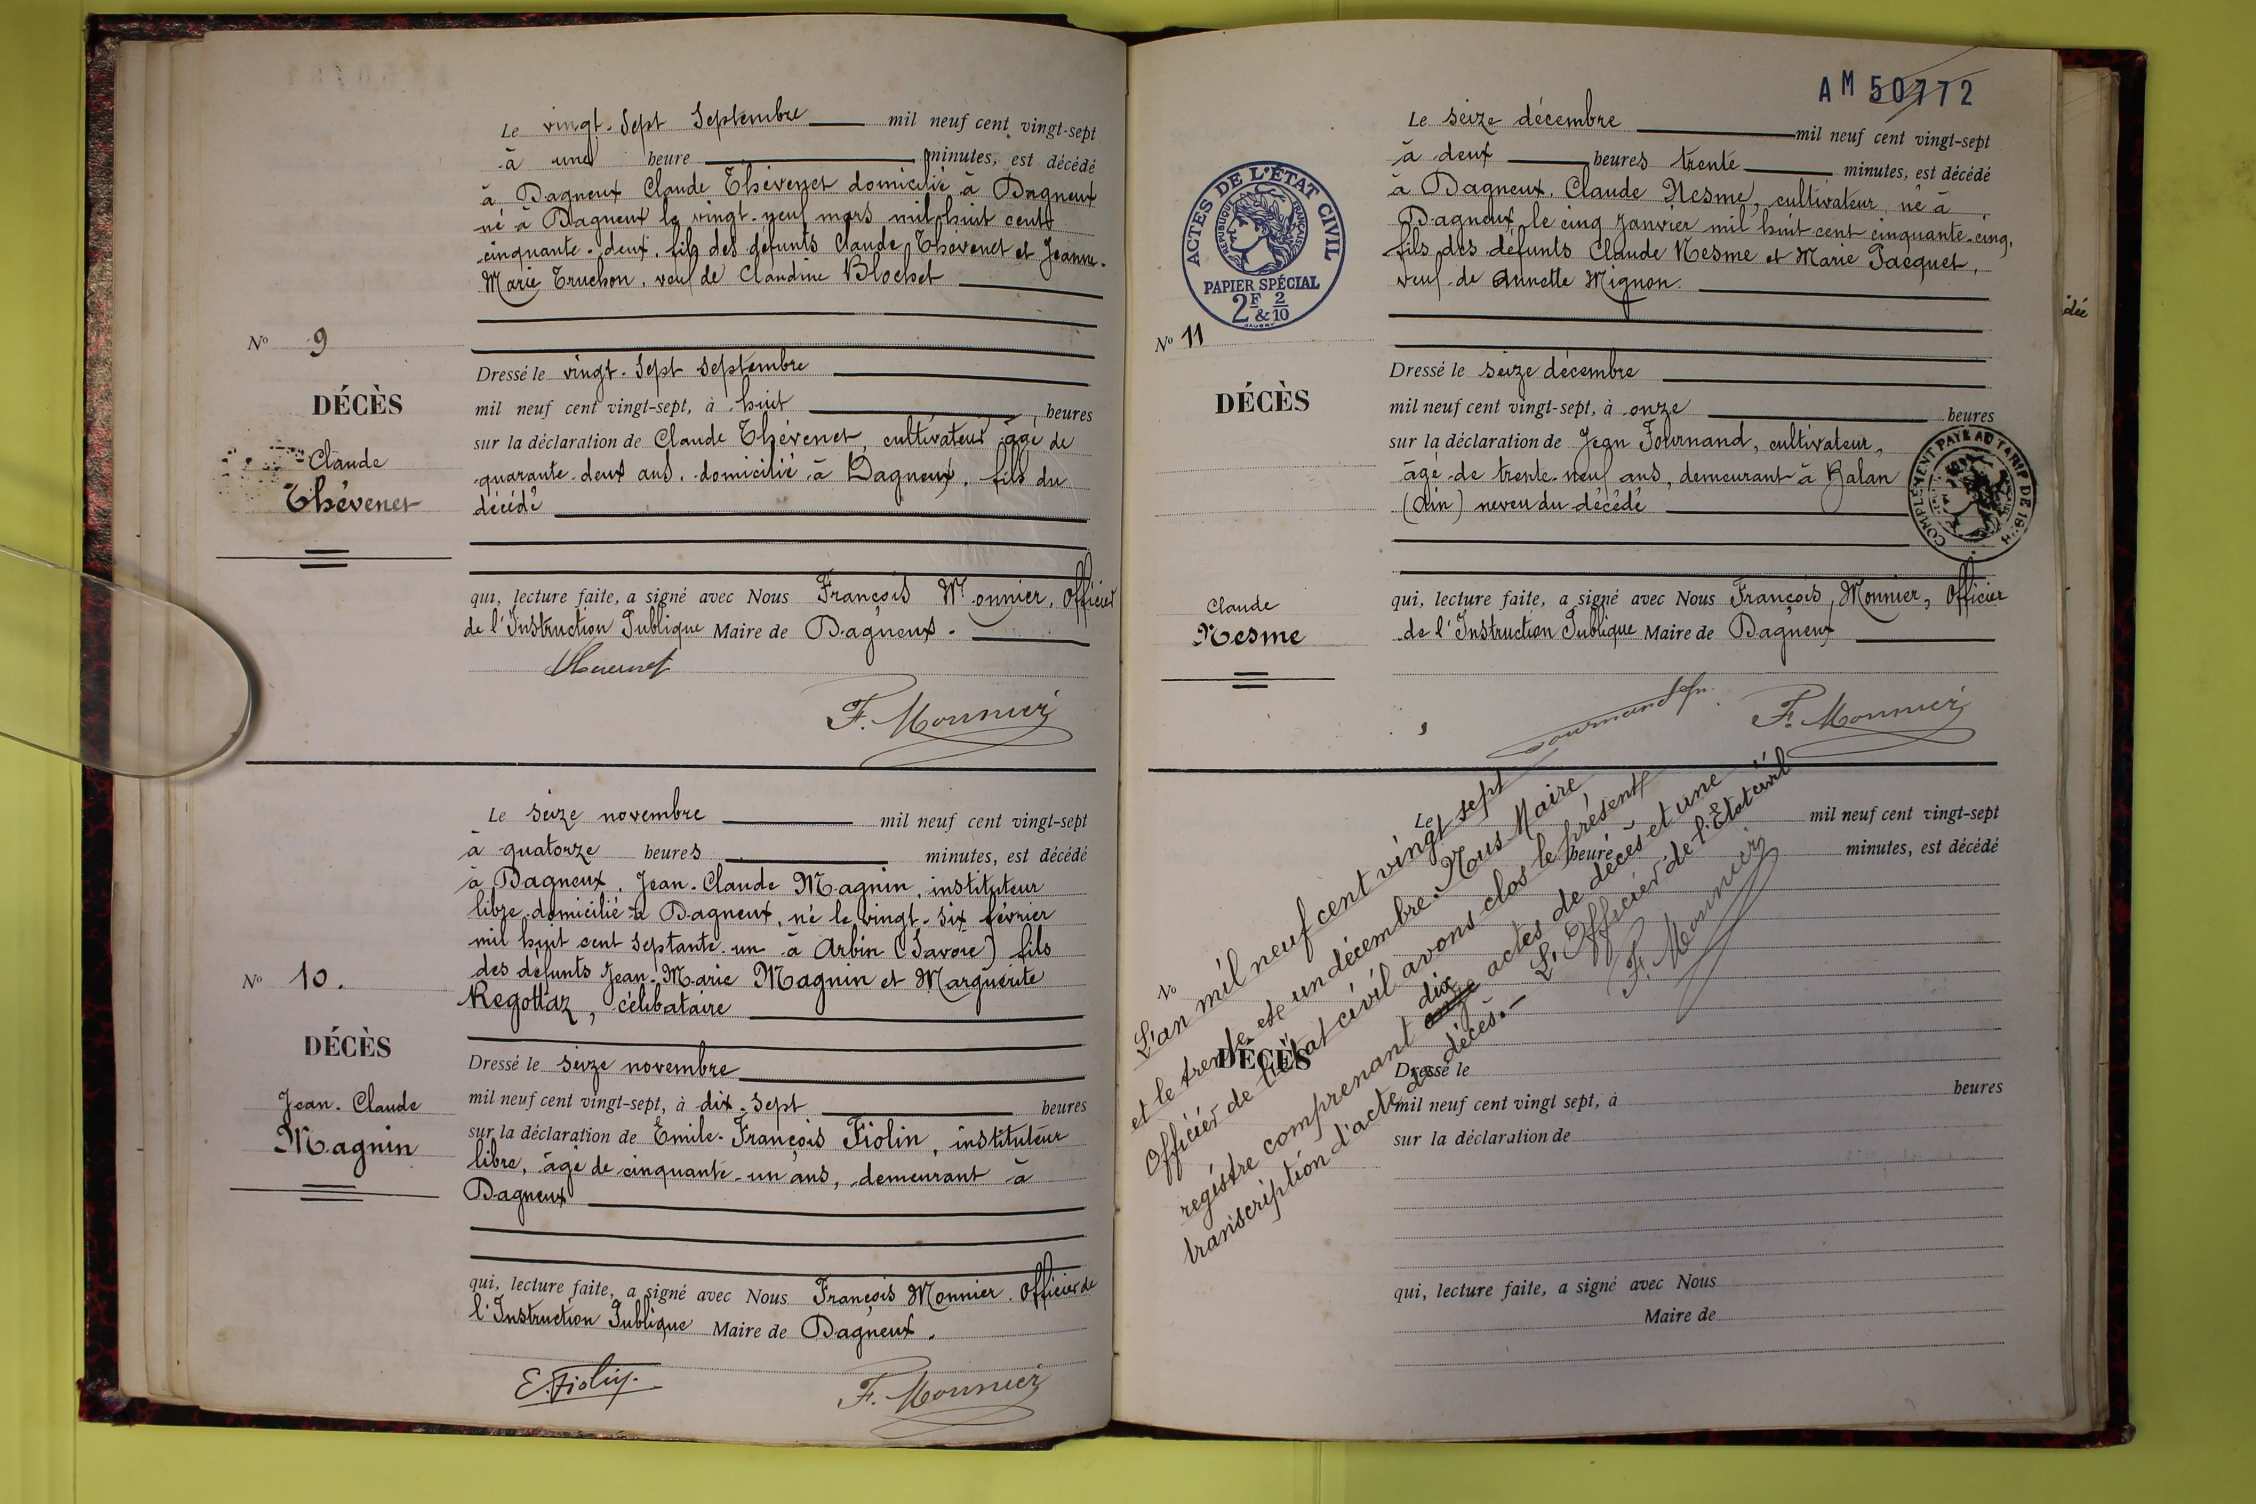 Le vingt-sept Septembre mil neuf cent vingt-sept
à une heure minutes, est décédé
à Dagneux Claude Thévenet domicilié à Dagneux
né à Dagneux le vingt-neuf mars mil huit cent
cinquante-deux, fils des défunts Claude Thévenet et Jeanne-
Marie Truchon, veuf de Claudine Blochet
No 9
DÉCÈS
Claude
Thévenet
Dressé le vingt-sept septembre
mil neuf cent vingt-sept, à huit heures
sur la déclaration de Claude Thévenet, cultivateur âgé de
quarante-deux ans, domicilié à Dagneux, fils du
décédé
qui, lecture faite, a signé avec Nous François Monnier, Officier
de l'Instruction Publique Maire de Dagneux.
Thévenet
F. Monnier
Le seize novembre mil neuf cent vingt-sept
à quatorze heures minutes, est décédé
à Dagneux, Jean-Claude Magnin, instituteur
libre domicilié à Dagneux, né le vingt-six février
mil huit cent septante-un à Arbin (Savoie) fils
des défunts Jean-Marie Magnin et Marguerite
Regottaz, célibataire
No 10.
DÉCÈS
Jean-Claude
Magnin
Dressé le seize novembre
mil neuf cent vingt-sept, à dix-sept heures
sur la déclaration de Emile-François Fiolin, instituteur
libre, âgé de cinquante-un ans, demeurant à
Dagneux
qui, lecture faite, a signé avec Nous François Monnier Officier de
l'Instruction Publique Maire de Dagneux.
E. Fiolin.
F. Monnier
AM 50772
Le seize décembre mil neuf cent vingt-sept
à deux heures trente minutes, est décédé
à Dagneux, Claude Nesme, cultivateur né à
Dagneux, le cinq janvier mil huit cent cinquante-cinq,
fils des défunts Claude Nesme et Marie Jacquet,
veuf de Annette Mignon.
ACTES DE L'ÉTAT CIVIL
RÉPUBLIQUE FRANÇAISE
PAPIER SPÉCIAL
2F & 2/10
No 11
DÉCÈS
Claude
Nesme
Dressé le seize décembre
mil neuf cent vingt-sept, à onze heures
sur la déclaration de Jean Fournand, cultivateur,
âgé de trente-neuf ans, demeurant à Balan
(Ain) neveu du décédé
COMPLÉMENT PAYÉ AU TARIF DE
qui, lecture faite, a signé avec Nous François Monnier, Officier
de l'Instruction Publique Maire de Dagneux
Fournand Jn.
F. Monnier
Le mil neuf cent vingt-sept
heure minutes, est décédé
No
DÉCÈS
L'an mil neuf cent vingt sept
et le trente et un décembre. Nous Maire
Officier de l'état civil avons clos le présent
registre comprenant onze dix actes de décès et une
transcription d'acte de décès.— L'Officier de l'Etat civil
F. Monnier
Dressé le
mil neuf cent vingt sept, à heures
sur la déclaration de
qui, lecture faite, a signé avec Nous
Maire de
dée